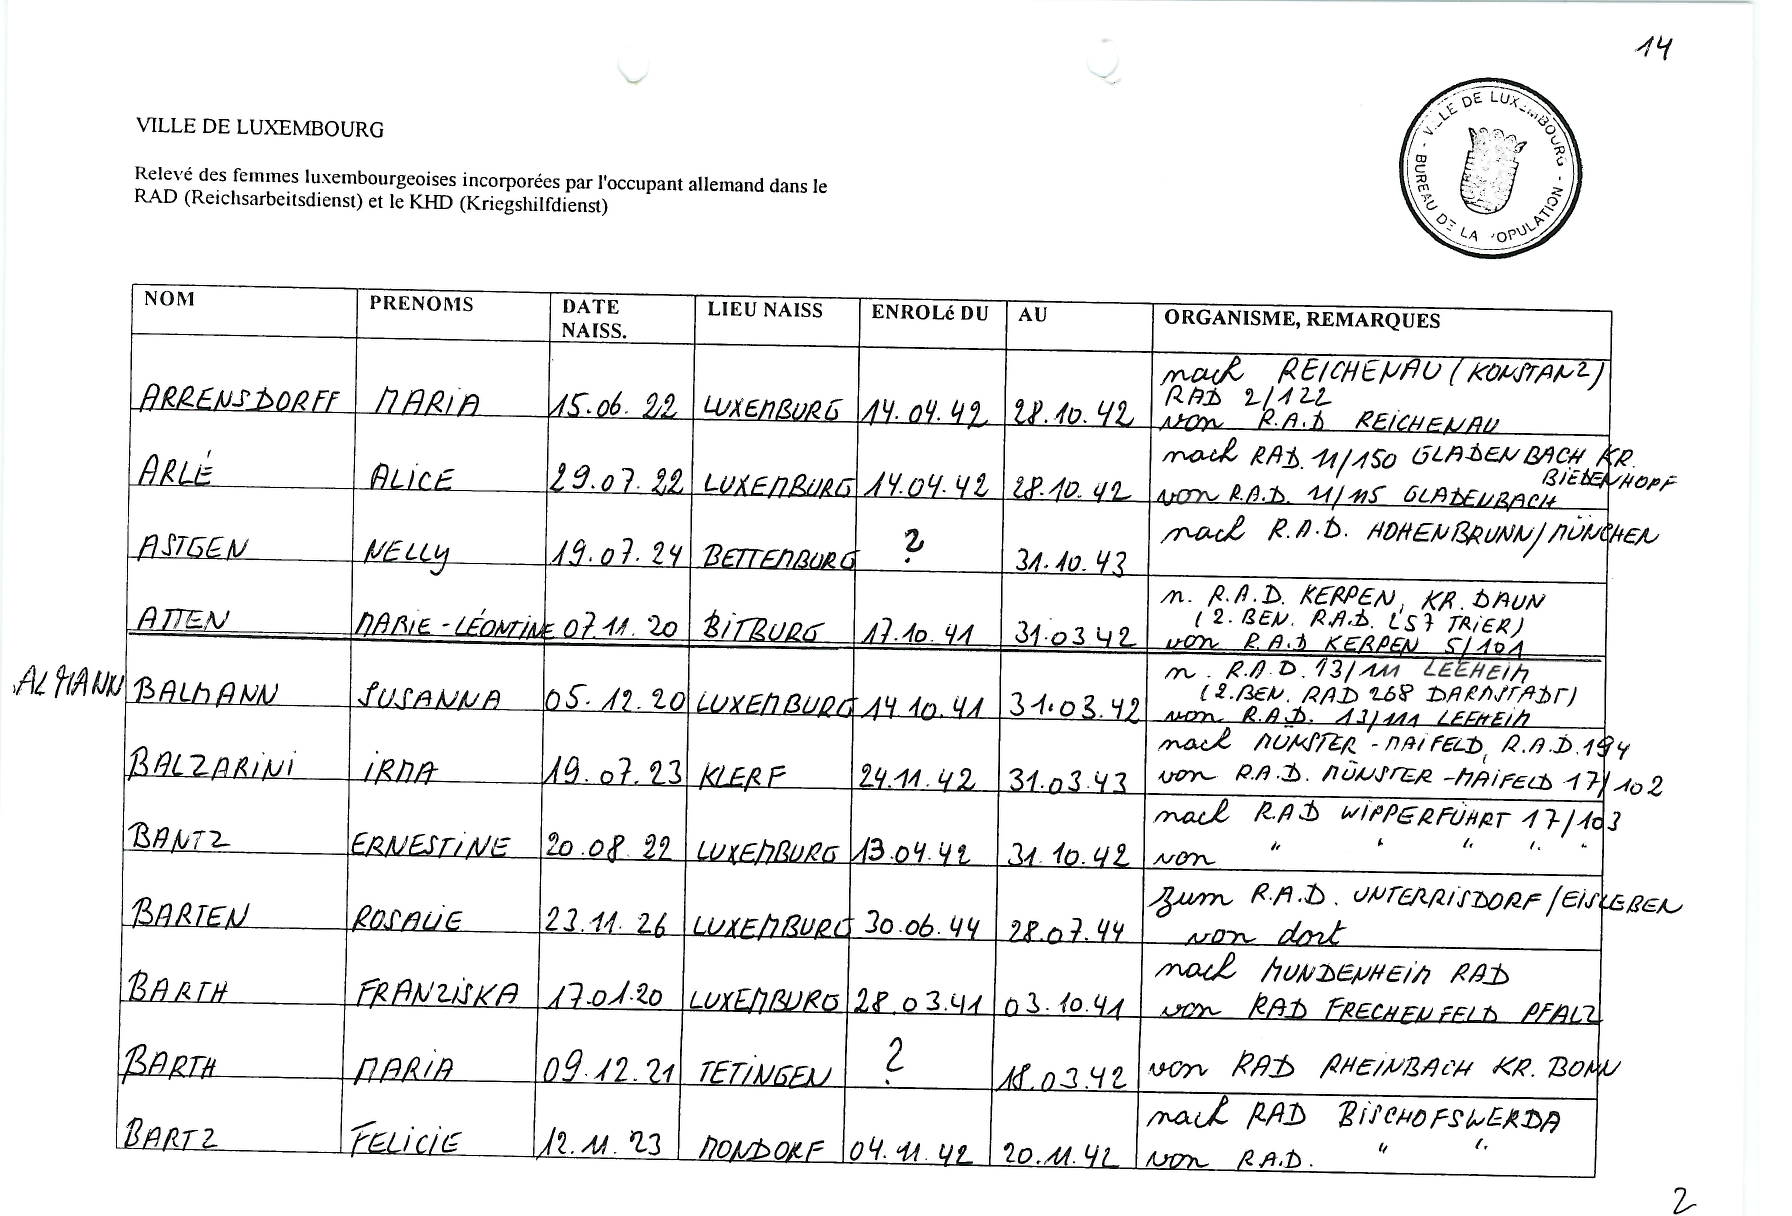 14
VILLE DE LUXEMBOURG
Relevé des femmes luxembourgeoises incorporées par l'occupant allemand dans le
RAD (Reichsarbeitsdienst) et le KHD (Kriegshilfdienst)
VILLE DE LUXEMBOURG - BUREAU DE LA POPULATION -
NOM PRENOMS DATE NAISS. LIEU NAISS ENROLé DU AU ORGANISME, REMARQUES
nach REICHENAU (KONSTANZ)
RAD 2/122
ARRENSDORFF MARIA 15.06.22 LUXEMBURG 14.04.42 28.10.42 von R.A.D REICHENAU
nach RAD. 11/150 GLADENBACH KR.
BIEDENHOPF
ARLÉ ALICE 29.07.22 LUXEMBURG 14.04.42 28.10.42 von R.A.D. 11/115 GLADENBACH
ASTGEN NELLY 19.07.24 BETTENBURG ? 31.10.43 nach R.A.D. HOHENBRUNN/MÜNCHEN
n. R.A.D. KERPEN, KR. DAUN
(2. BEN. R.A.D. LS7 TRIER)
ATTEN MARIE-LÉONTINE 07.11.20 BITBURG 17.10.41 31.03.42 von R.A.D KERPEN 5/101
n. R.A.D. 13/111 LEEHEIM
(2.BEN. RAD 268 DARMSTADT)
ALMANN BALMANN SUSANNA 05.12.20 LUXEMBURG 14.10.41 31.03.42 von R.A.D. 13/111 LEEHEIM
nach MÜNSTER-MAIFELD, R.A.D.194
BALZARINI IRMA 19.07.23 KLERF 24.11.42 31.03.43 von R.A.D. MÜNSTER-MAIFELD 17/102
nach RAD WIPPERFÜHRT 17/103
BANTZ ERNESTINE 20.08.22 LUXEMBURG 13.04.42 31.10.42 von " " " " "
zum R.A.D. UNTERRISDORF/EISLEBEN
BARTEN ROSALIE 23.11.26 LUXEMBURG 30.06.44 28.07.44 von dort
nach MUNDENHEIM RAD
BARTH FRANZISKA 17.01.20 LUXEMBURG 28.03.41 03.10.41 von RAD FRECHENFELD PFALZ
BARTH MARIA 09.12.21 TETINGEN ? 18.03.42 von RAD RHEINBACH KR. BONN
nach RAD BISCHOFSWERDA
BARTZ FELICIE 12.11.23 MONDORF 04.11.42 20.11.42 von R.A.D. " "
2